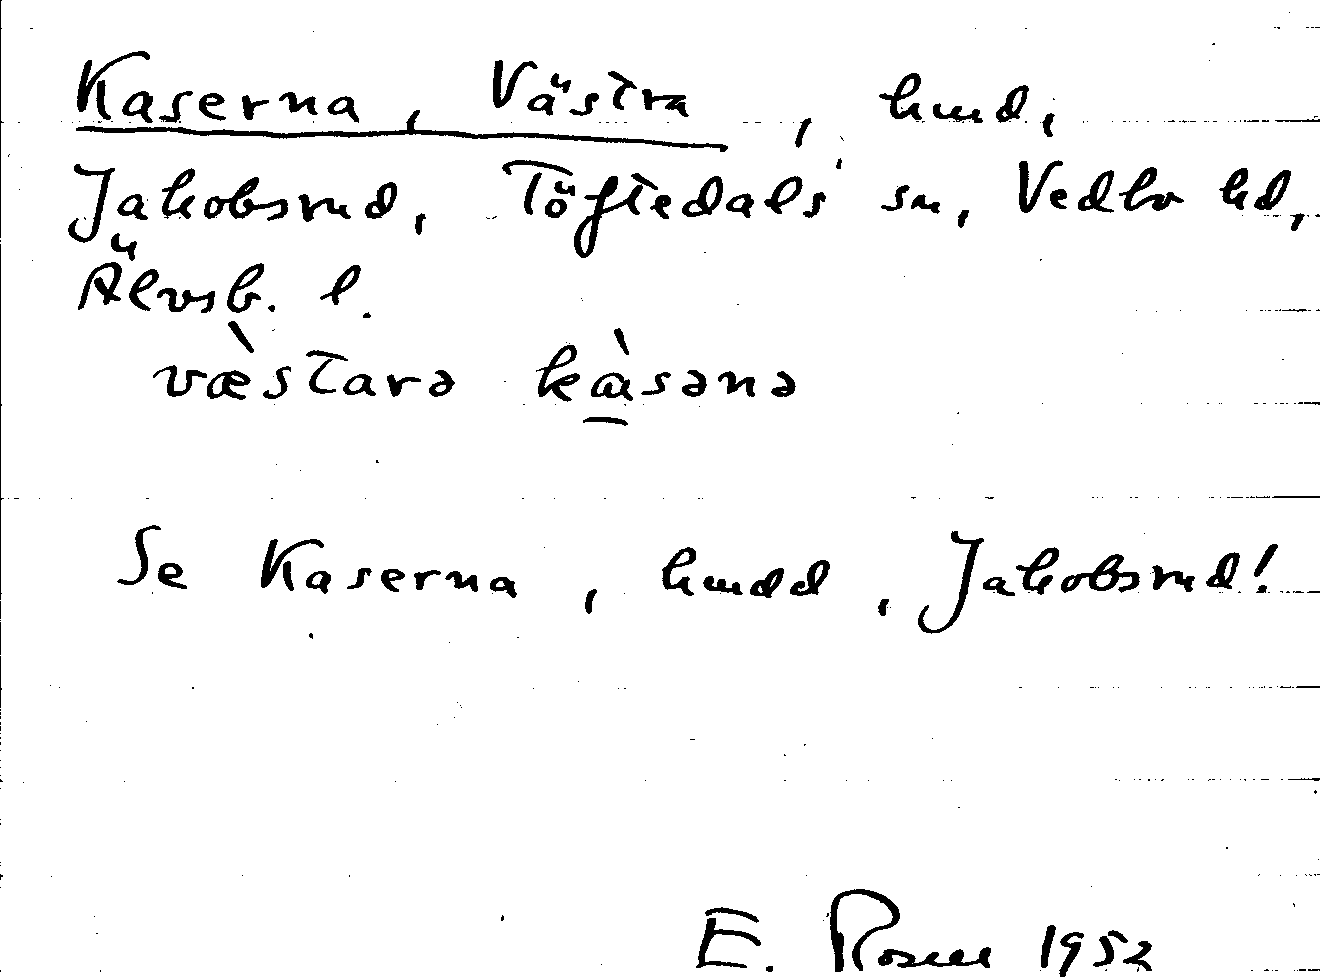 Kaserna, Västra, hmd,
Jakobsrud, Töftedals sn, Vedbo hd,
Älvsb. l.
væ̀starə kɑ̀sənə
Se Kaserna, hmdd, Jakobsrud!
E. Rosen 1952